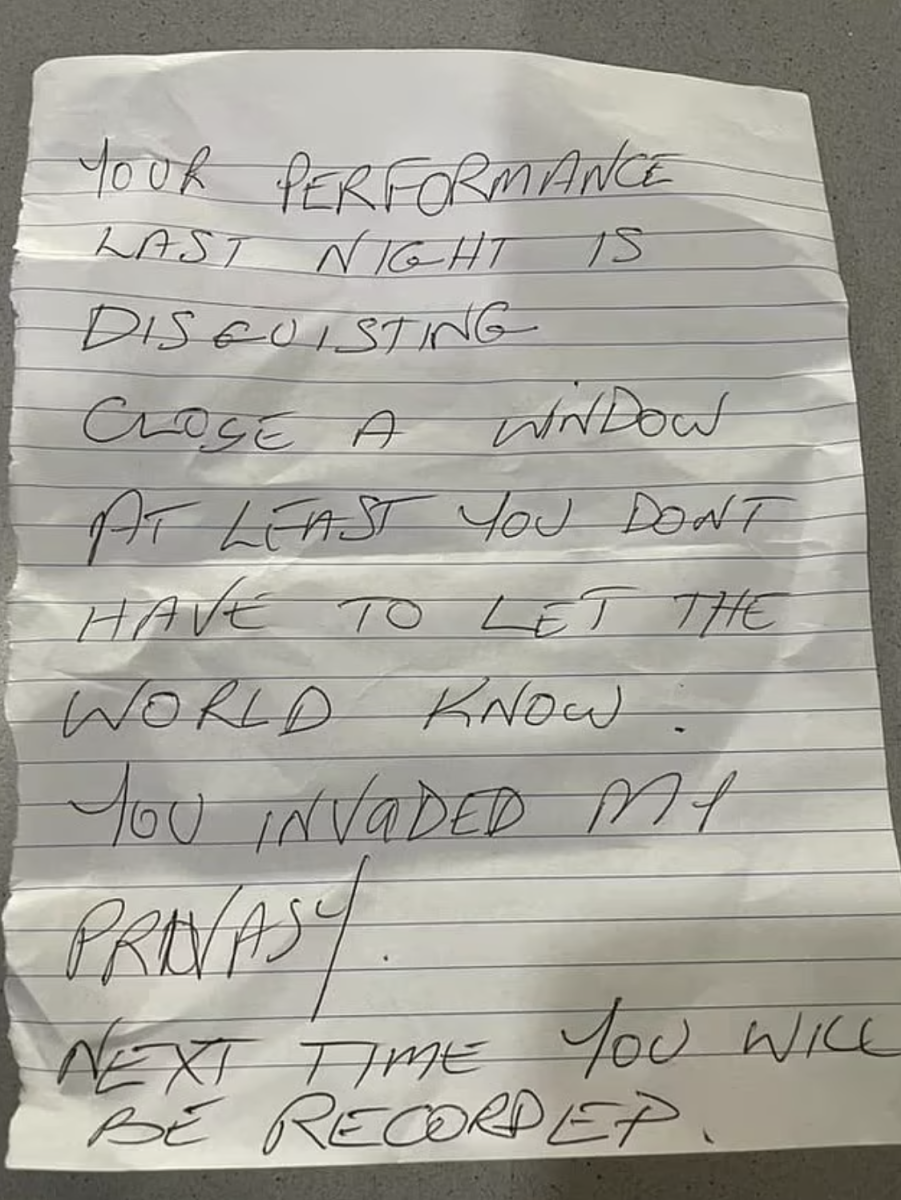 YOUR PERFORMANCE
LAST NIGHT IS
DISGUISTING
CLOSE A WINDOW
AT LEAST YOU DONT
HAVE TO LET THE
WORLD KNOW.
YOU INVADED MY
PRIVASY.
NEXT TIME YOU WILL
BE RECORDED.